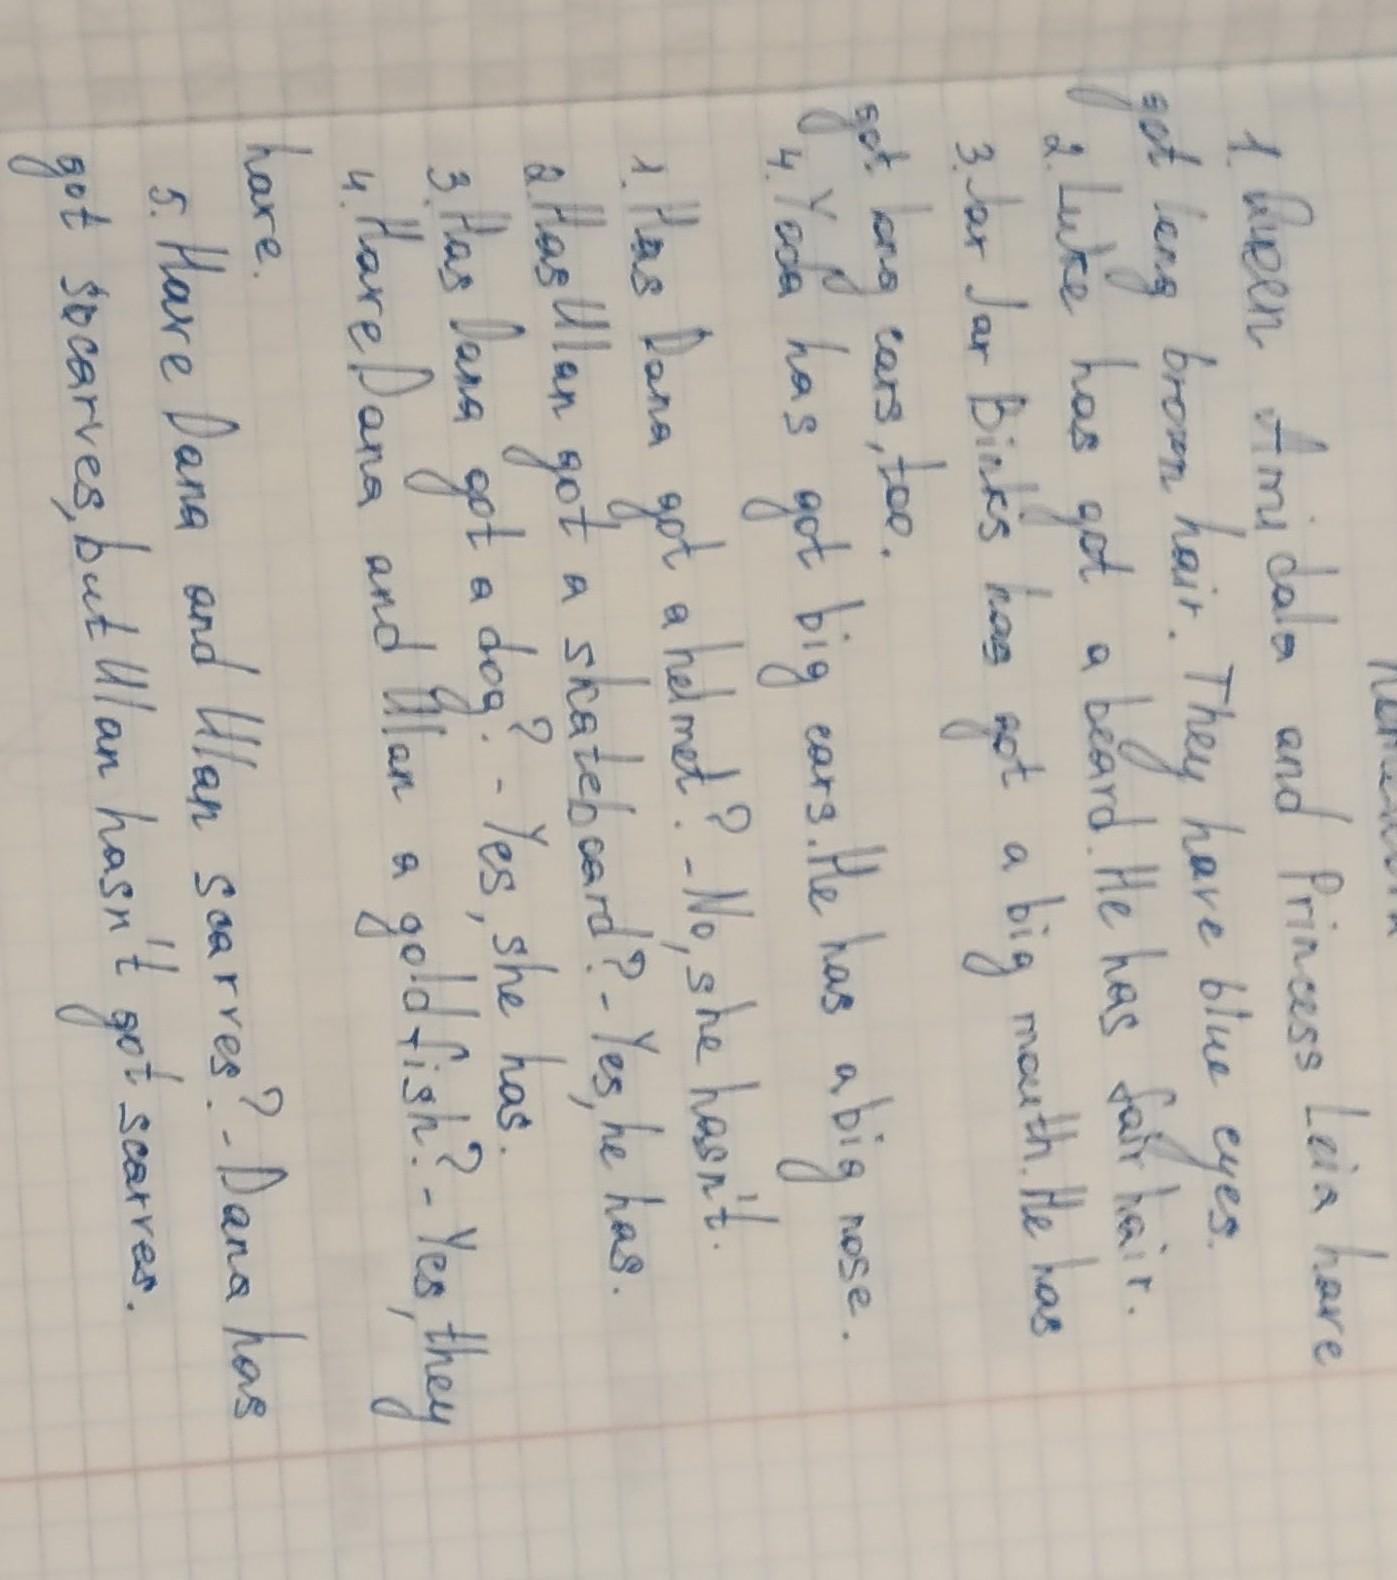 1. Queen Amidala and Princess Leia have
got long brown hair. They have blue eyes.
2. Luke has got a beard. He has fair hair.
3. Jar Jar Binks has got a big mouth. He has
got long ears, too.
4. Yoda has got big ears. He has a big nose.
1. Has Dana got a helmet? - No, she hasn't.
2. Has Ulan got a skateboard? - Yes, he has.
3. Has Dana got a dog? - Yes, she has.
4. Have Dana and Ulan a goldfish? - Yes, they
have.
5. Have Dana and Ulan scarves? - Dana has
got socarves, but Ulan hasn't got scarves.